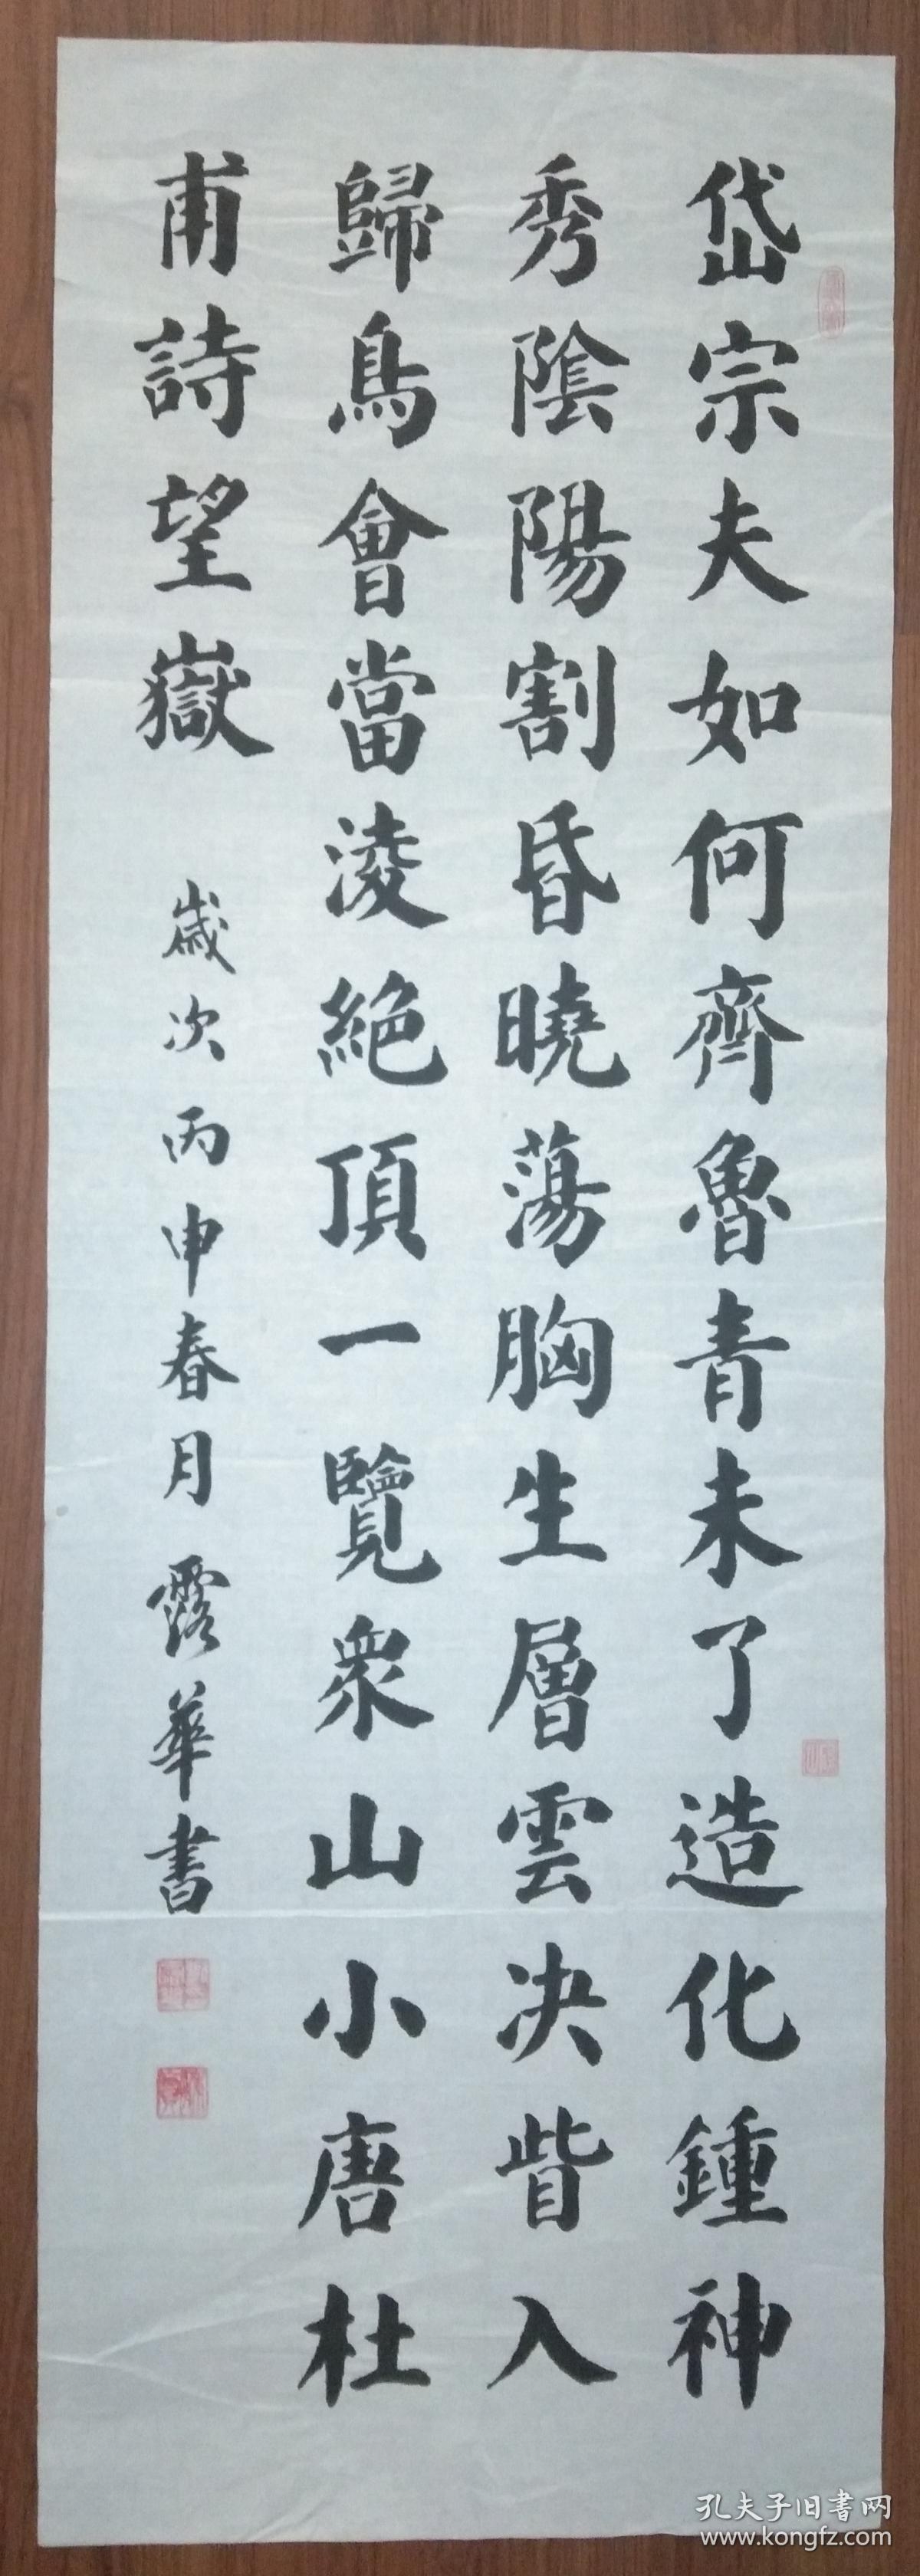 岱宗夫如何齊魯青未了造化鍾神
秀陰陽割昏曉蕩胸生層雲決眥入
歸鳥會當淩絕頂一覽眾山小唐杜
甫詩望嶽
歲次丙申春月露華書
孔夫子旧書网
www.kongfz.com